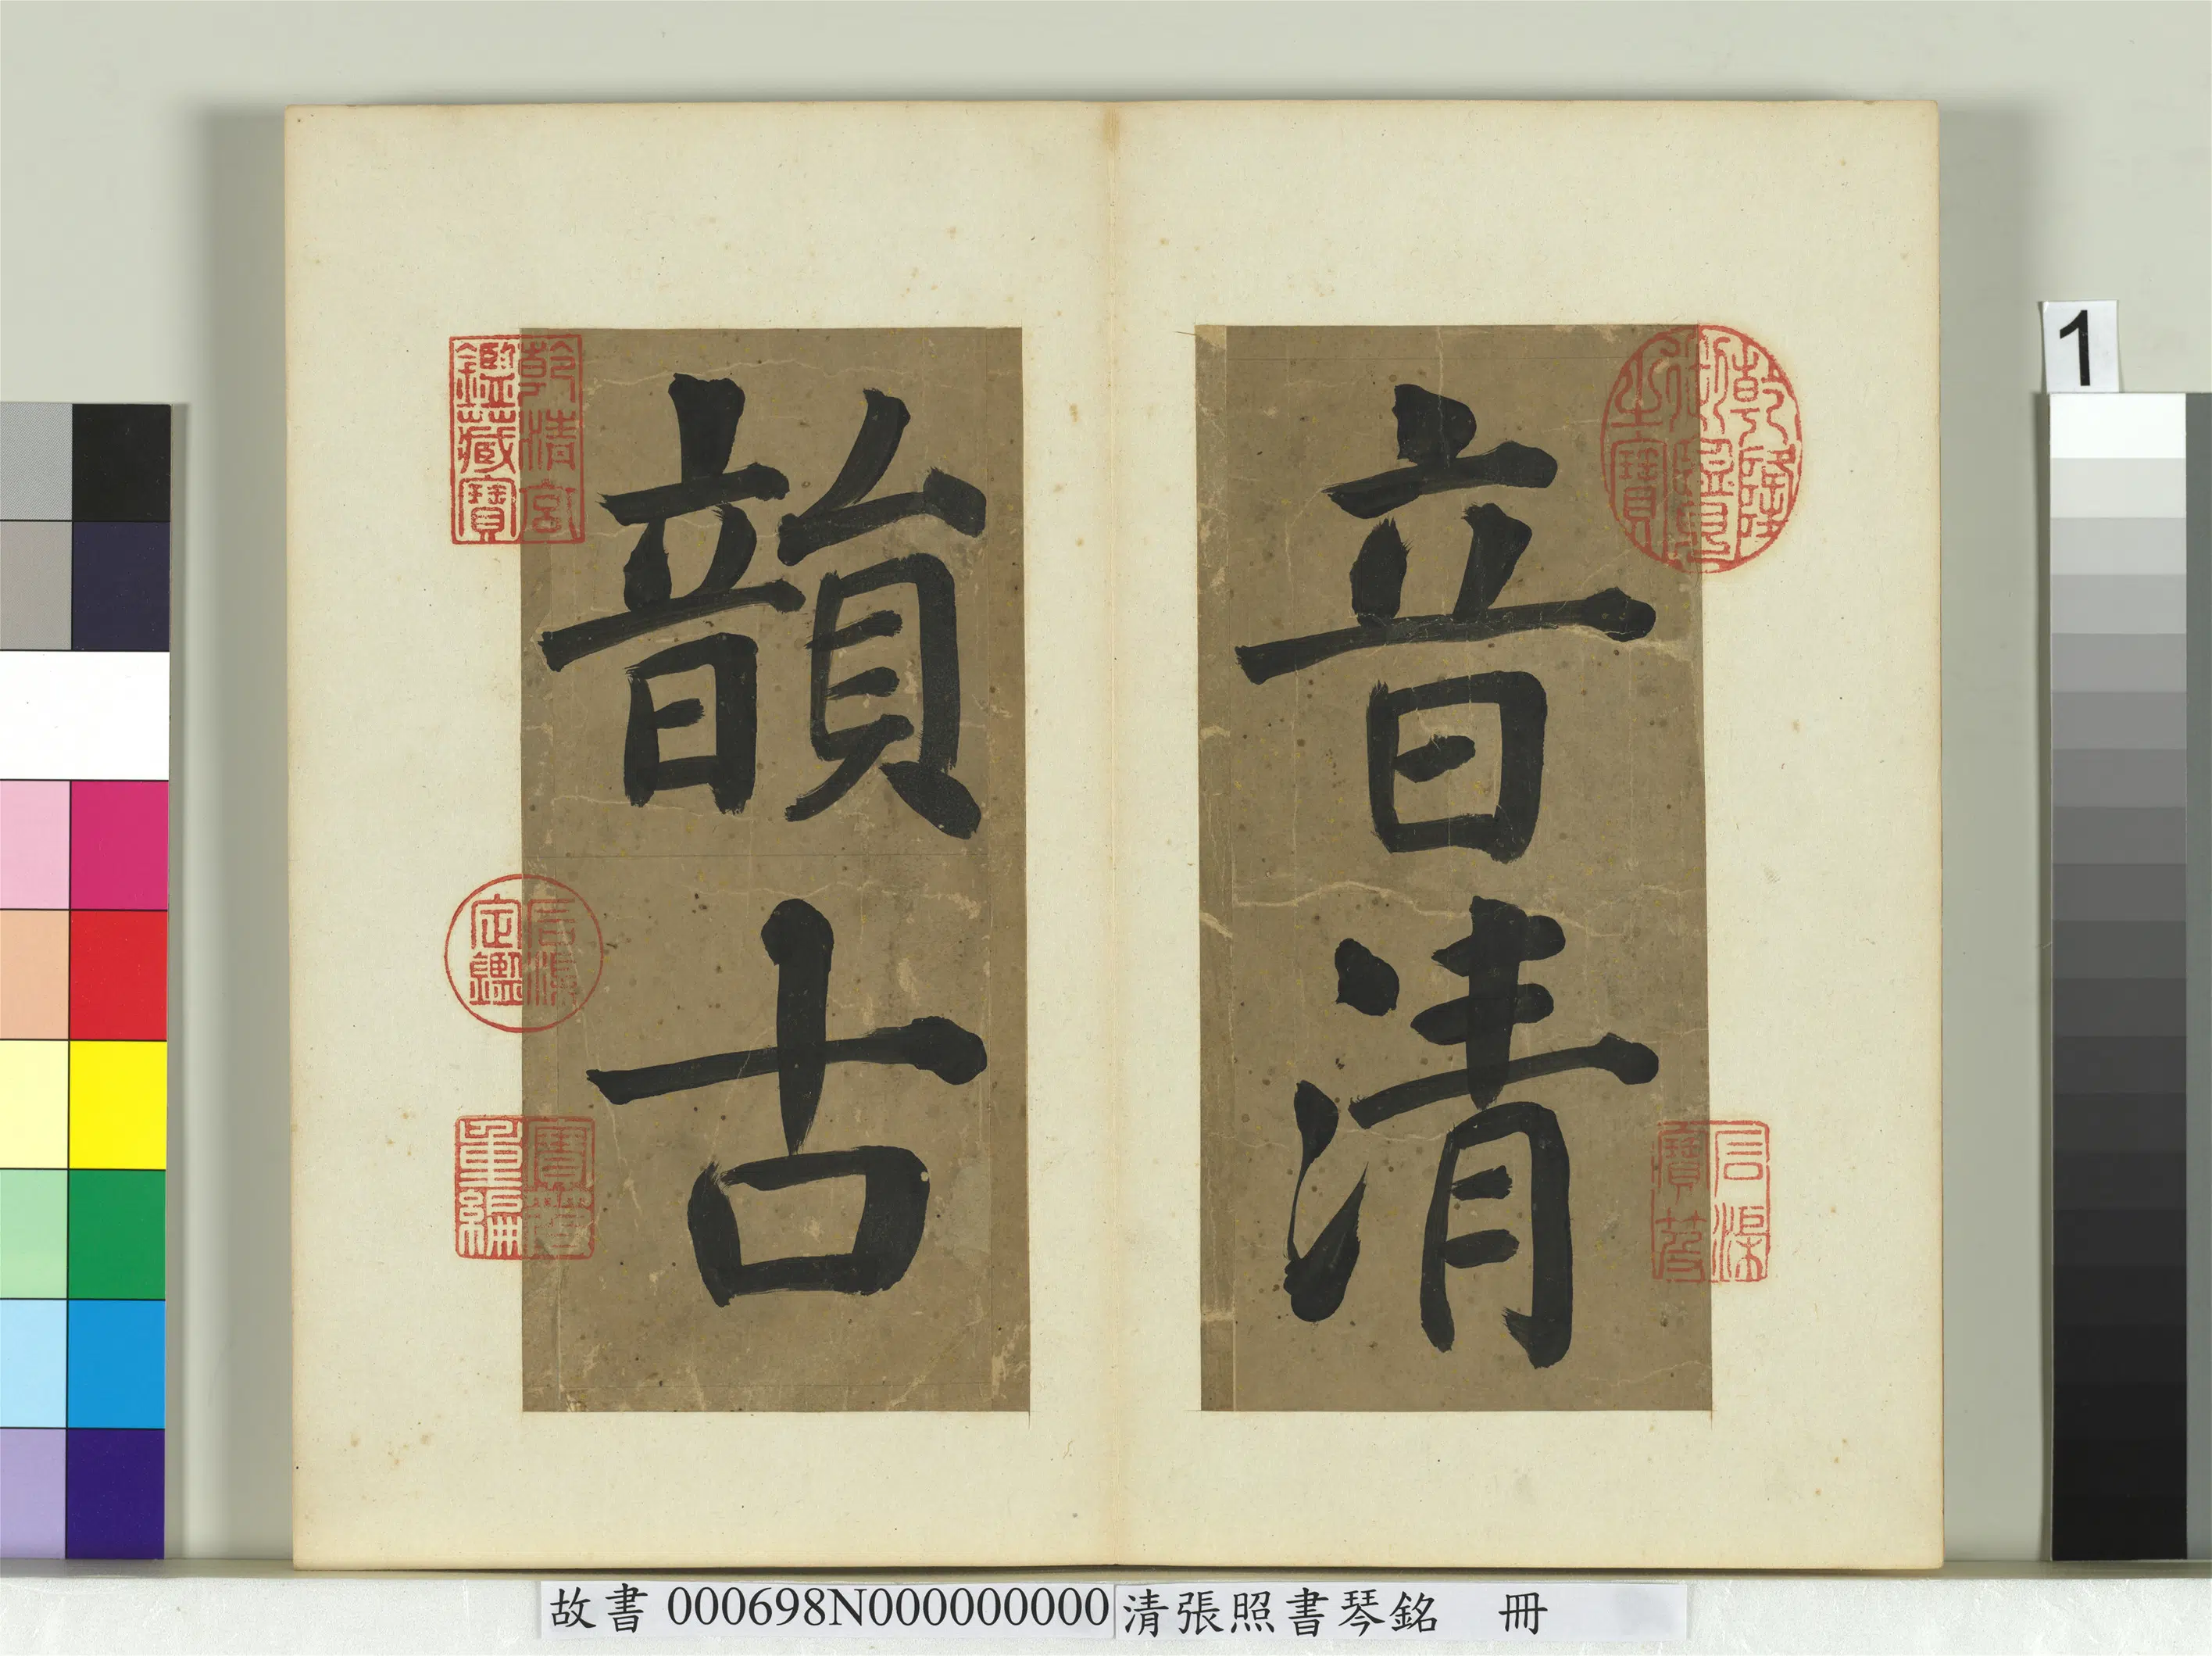 音清
韻古
乾隆御覽之寶
石渠寶笈
乾清宮鑑藏寶
石渠定鑑
寶笈重編
1
故書 000698N000000000 清張照書琴銘 冊